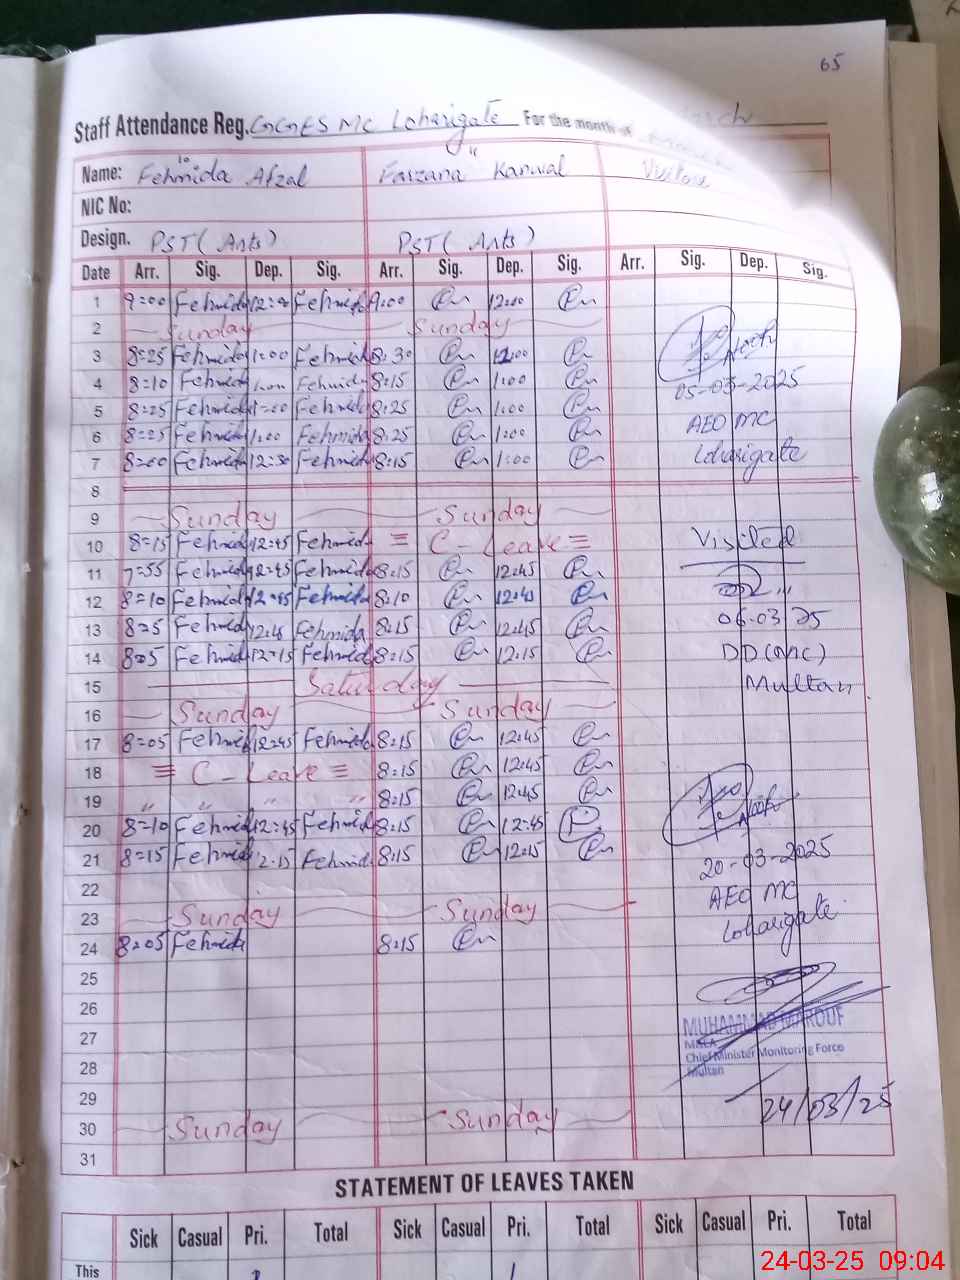 65
Staff Attendance Reg. GGES MC Loharigate For the month of March
Name: Fehmida Afzal Farzana Kanwal Visitors
NIC No:
Design. PST (Arts) PST (Arts)
Date Arr. Sig. Dep. Sig. Arr. Sig. Dep. Sig. Arr. Sig. Dep. Sig.
1 9=00 Fehmida Fehmida 9:00 12:00
2 Sunday Sunday
3 8=25 Fehmida 1:00 Fehmida 8:30
4 8=10 Fehmida Fehmida 8:15 1:00
05-03-2025
5 8=25 Fehmida 1=00 Fehmida 8:25 1:00
AEO MC
6 8=25 Fehmida 1:00 Fehmida 8:25 1:00
7 8=00 Fehmida 12=30 Fehmida 8:15 1:00 Loharigate
8
9 Sunday Sunday
10 8=15 Fehmida 12=45 Fehmida C-Leave Visited
11 7=55 Fehmida 12=45 Fehmida 8:15 12:45
12 8=10 Fehmida 12=45 Fehmida 8:10 12:45
13 8=5 Fehmida 12:45 Fehmida 8:15 12:45 06.03.25
14 8=5 Fehmida 12=15 Fehmida 8:15 12:15 DD(MC)
15 Saturday Multan
16 Sunday Sunday
17 8=05 Fehmida 12=45 Fehmida 8:15 12:45
18 C-Leave 8:15 12:45
19 " " " " 8:15 12:45
20 8=10 Fehmida 12=45 Fehmida 8:15 12:45
21 8=15 Fehmida 12.15 Fehmida 8:15 12:15 20-03-2025
22 AEO MC
23 Sunday Sunday Loharigate
24 8=05 Fehmida 8:15
25
26
27 MUHAMMAD MAROUF
MEA
28 Chief Minister Monitoring Force
Multan
29 24/03/25
30 Sunday Sunday
31
STATEMENT OF LEAVES TAKEN
Sick Casual Pri. Total Sick Casual Pri. Total Sick Casual Pri. Total
This
24-03-25 09:04